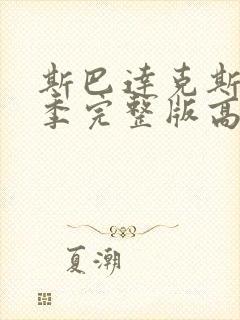 斯巴达克斯
季完整版高
夏潮